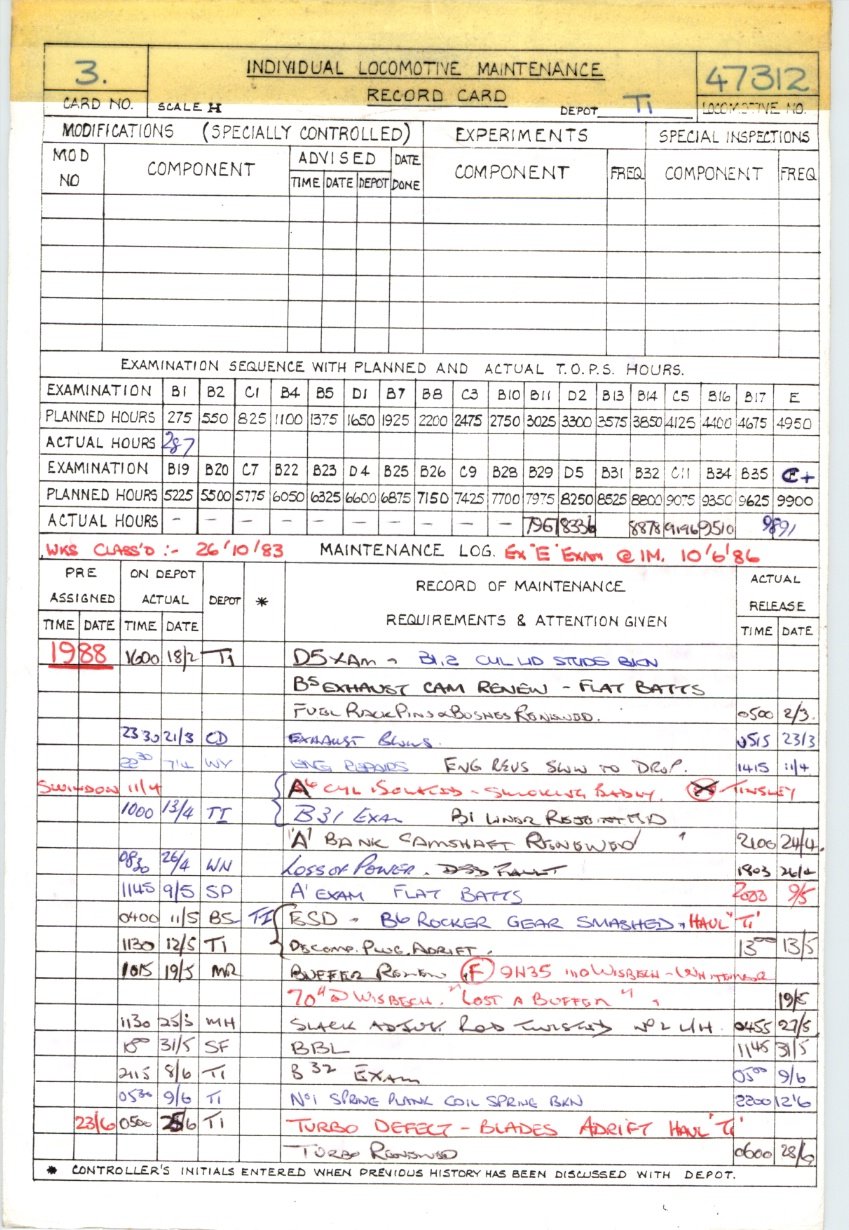 3. INDIVIDUAL LOCOMOTIVE MAINTENANCE 47312
CARD NO. SCALE H RECORD CARD DEPOT TI LOCOMOTIVE NO.
MODIFICATIONS (SPECIALLY CONTROLLED) EXPERIMENTS SPECIAL INSPECTIONS
MOD NO COMPONENT ADVISED DATE DONE COMPONENT FREQ COMPONENT FREQ
TIME DATE DEPOT
EXAMINATION SEQUENCE WITH PLANNED AND ACTUAL T.O.P.S. HOURS.
EXAMINATION B1 B2 C1 B4 B5 D1 B7 B8 C3 B10 B11 D2 B13 B14 C5 B16 B17 E
PLANNED HOURS 275 550 825 1100 1375 1650 1925 2200 2475 2750 3025 3300 3575 3850 4125 4400 4675 4950
ACTUAL HOURS 287
EXAMINATION B19 B20 C7 B22 B23 D4 B25 B26 C9 B28 B29 D5 B31 B32 C11 B34 B35 E+
PLANNED HOURS 5225 5500 5775 6050 6325 6600 6875 7150 7425 7700 7975 8250 8525 8800 9075 9350 9625 9900
ACTUAL HOURS - - - - - - - - - - 7967 8336 8878 9196 9510 9891
WKS CLASS'D :- 26/10/83 MAINTENANCE LOG. EX "E" EXAM @ IM. 10/6/86
PRE ASSIGNED ON DEPOT ACTUAL DEPOT * RECORD OF MAINTENANCE REQUIREMENTS & ATTENTION GIVEN ACTUAL RELEASE
TIME DATE TIME DATE TIME DATE
1988 1600 18/2 TI D5 XAM - B1.2 CYL HD STUDS BKN
B5 EXHAUST CAM RENEW - FLAT BATTS
FUEL RACK PINS & BUSHES RENEWED. 0500 2/3.
2330 21/3 CD EXHAUST BLOWS. 0515 23/3
2230 7/4 WY ENG REPAIRS ENG REVS SLOW TO DROP. 1415 11/4
SWINDON 11/4 A6 CYL ISOLATED - SMOKING BADLY. TINSLEY
1000 13/4 TI B31 EXAM B1 LINER
'A' BANK CAMSHAFT RENEWED 2100 24/4.
0830 26/4 WN LOSS OF POWER. DSD FAULT 1803 26/4
1145 9/5 SP 'A' EXAM FLAT BATTS 2000 9/5
0400 11/5 BS TI ESD - B6 ROCKER GEAR SMASHED, HAUL "TI"
1130 12/5 TI DECOMP. PLUG ADRIFT. 1300 13/5
1015 19/5 MR BUFFER RENEW (F) 9H35 1110 WISBECH - WHITEMOOR
70" @ WISBECH. "LOST A BUFFER" 19/5
1130 25/5 MH SLACK ADJUST ROD TWISTED No 2 L/H. 0455 27/5
1800 31/5 SF BBL 1145 31/5
2115 8/6 TI B32 EXAM 0500 9/6
0530 9/6 TI No1 SPRING PLANK COIL SPRING BKN 2200 12/6
23/6 0500 25/6 TI TURBO DEFECT - BLADES ADRIFT HAUL "TI"
TURBO RENEWED 0600 28/6
* CONTROLLER'S INITIALS ENTERED WHEN PREVIOUS HISTORY HAS BEEN DISCUSSED WITH DEPOT.